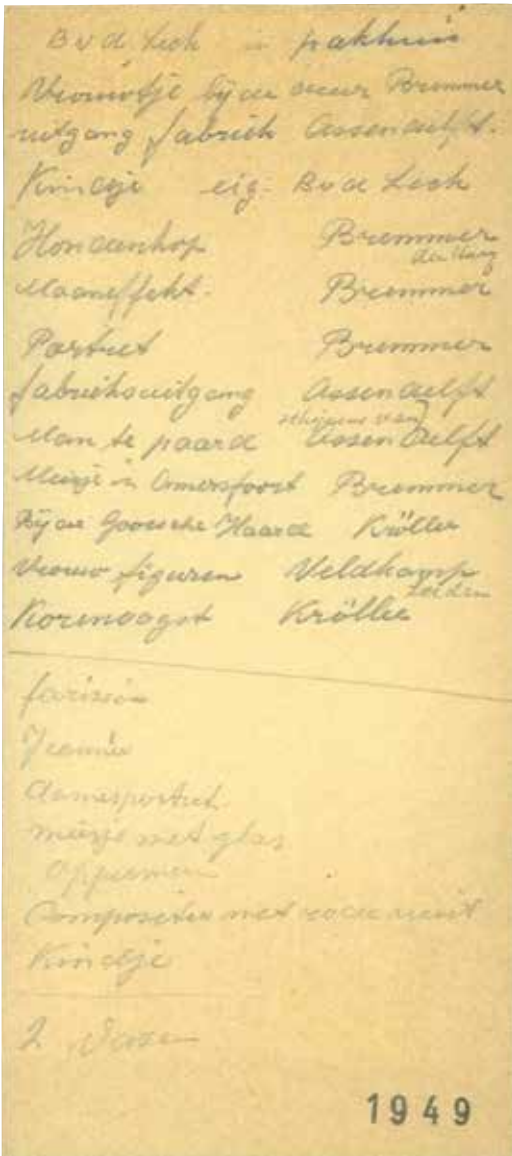 B v d. Leck in pakhuis
Vrouwtje bij de deur Bremmer
uitgang fabriek Assendelft.
Kindje eig. B v d Leck
Hondenkop Bremmer
den Haag
Maaneffekt. Bremmer
Portret Bremmer
fabrieksuitgang Assendelft
Man te paard schijnns van Assendelft
Meisje in Amersfoort Bremmer
Bij de Gooische Haard Kröller
Vrouw figuren Veldkamp
Leiden
Korenoogst Kröller
farizeën
Jeannie
damesportret.
meisje met glas
Composities met rode ruit
Kindje
2 Vazen
1949